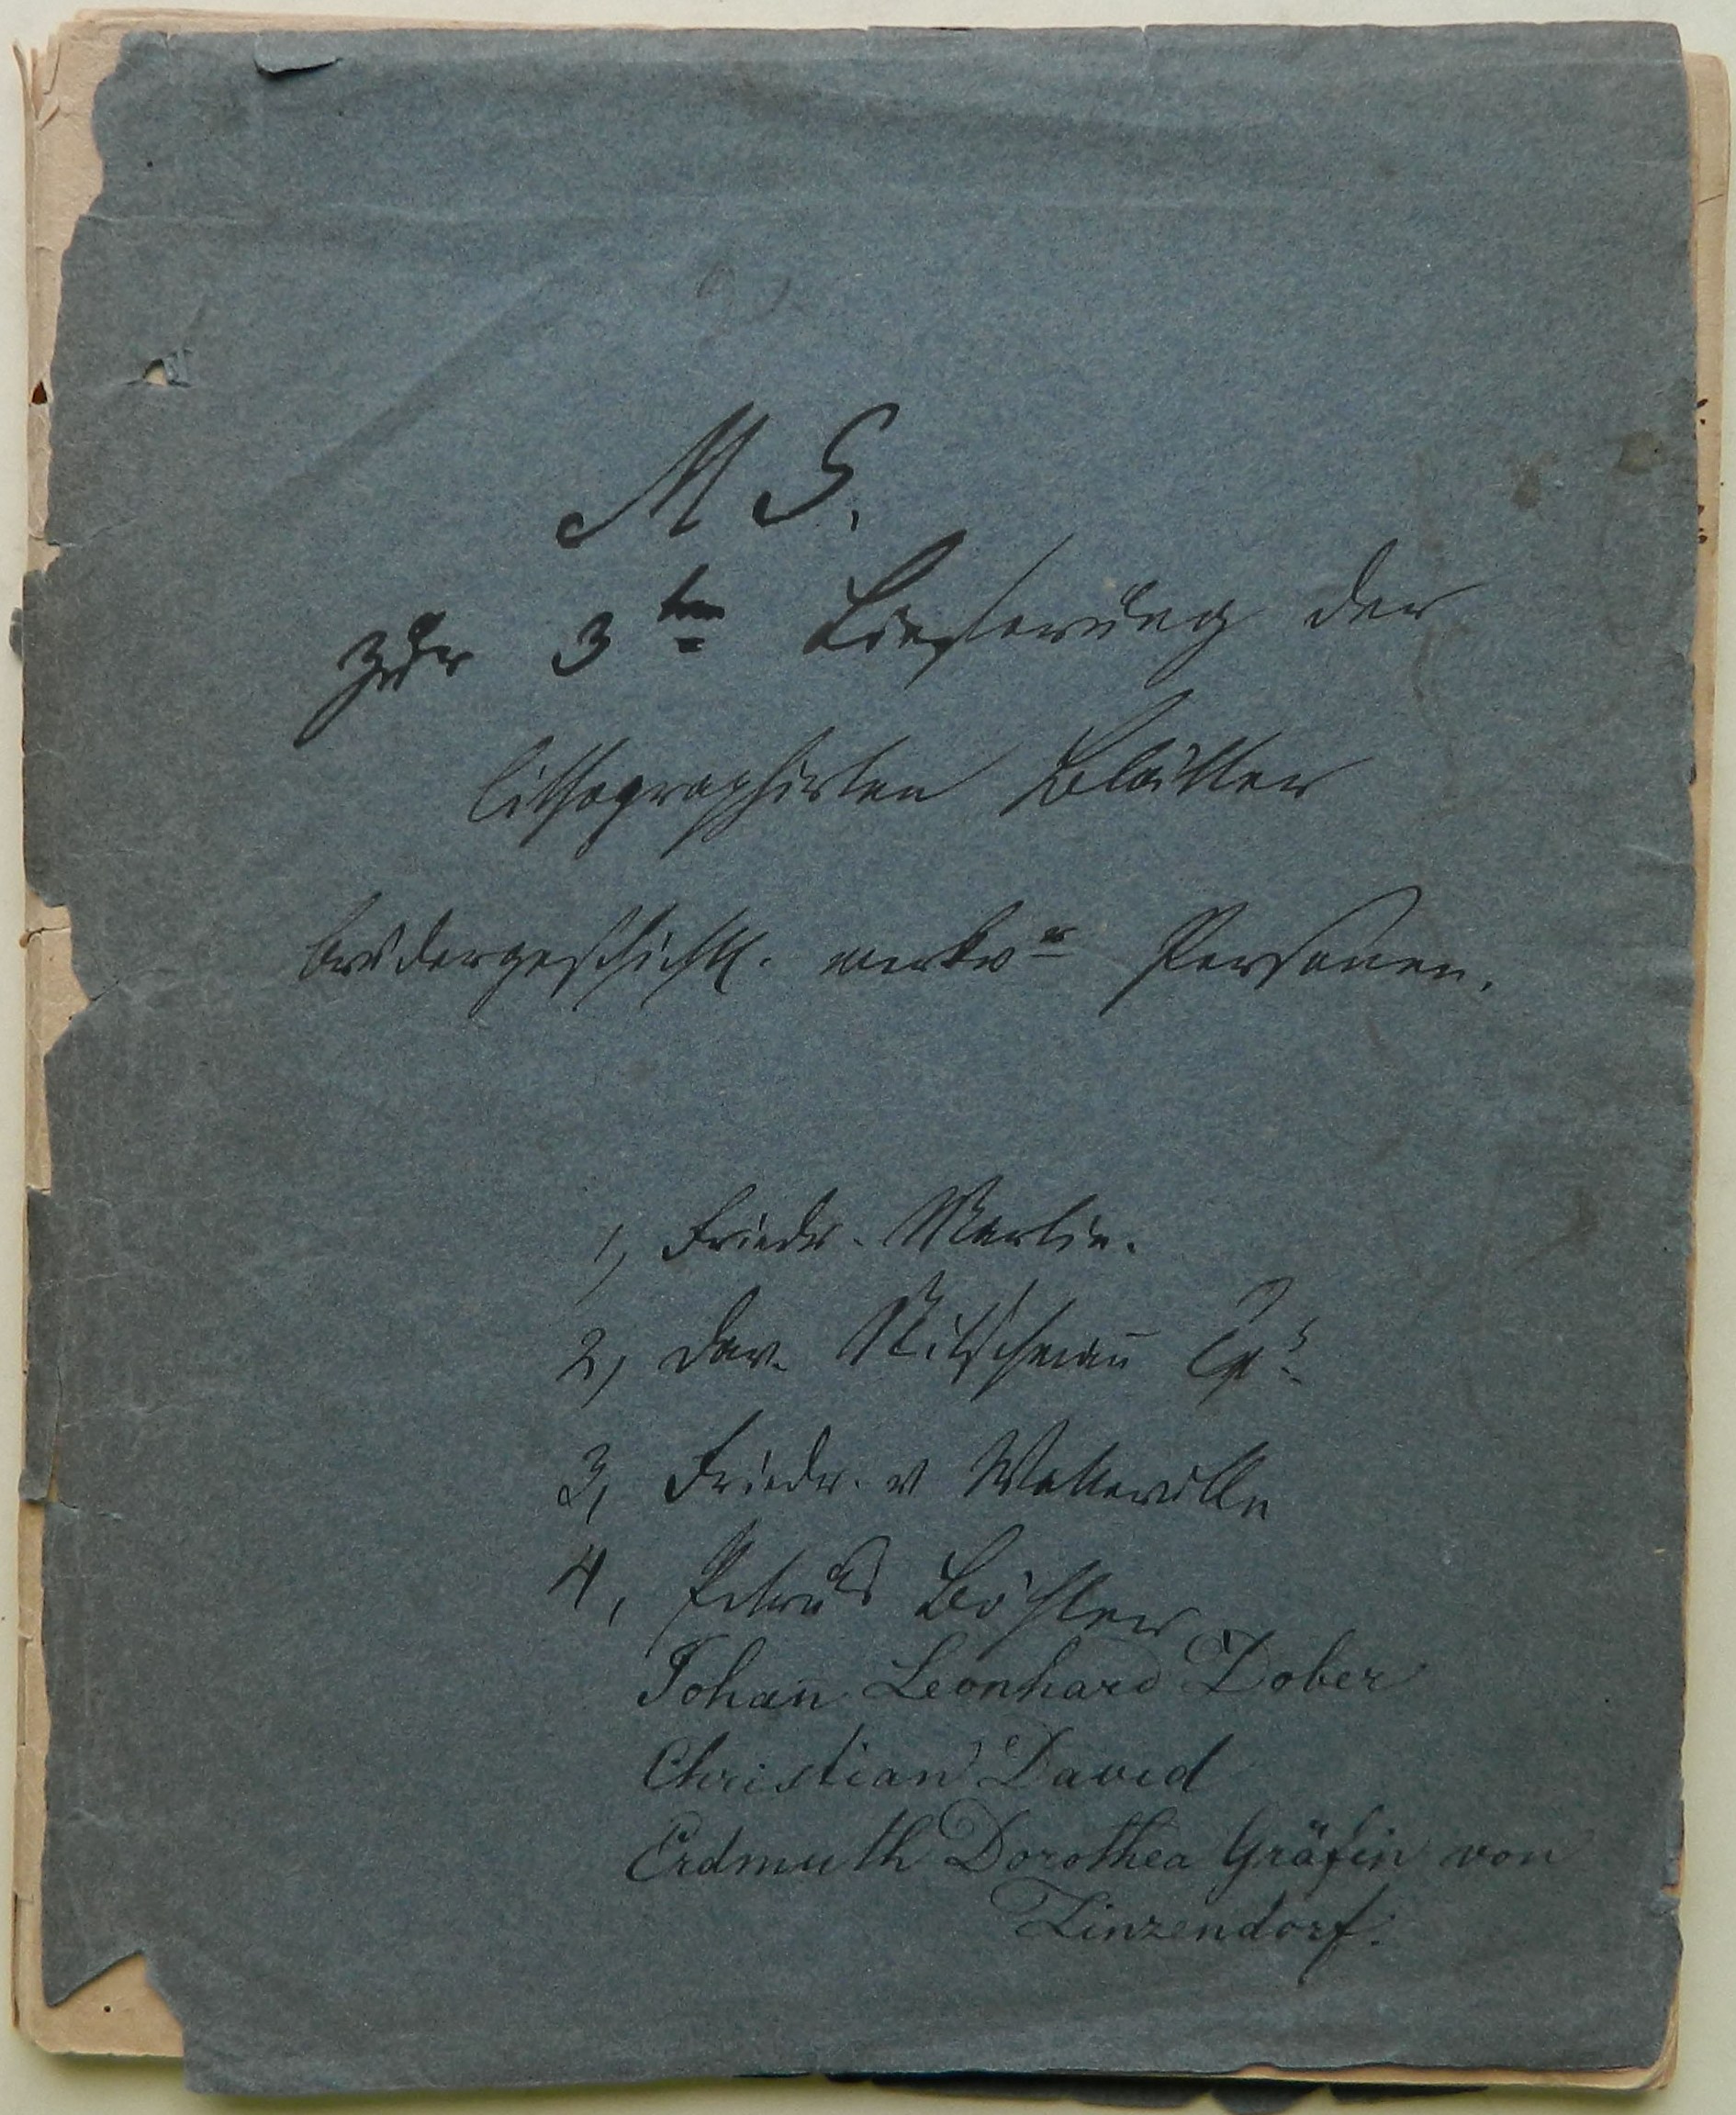 MS.
zur 3ten Lieferung der
lithographirten Blätter
brüdergeschichtl. merkwr Personen.
1, Friedr. Martin.
2, Dav. Nitschmañ Eps.
3, Friedr. v Watteville
4, Petrus Böhler
Johañ Leonhard Dober
Christian David
Erdmuth Dorothea Gräfin von
Zinzendorf.